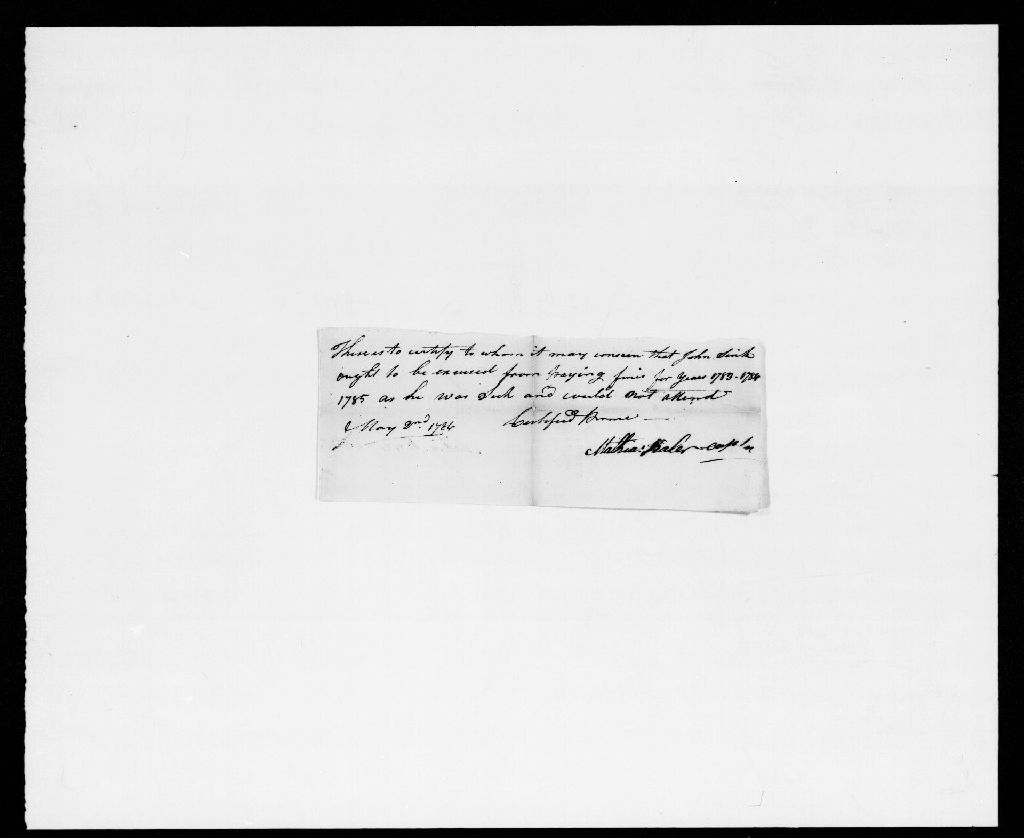 These is to certify to whom it may concern that John Sink
ought to be excused from paying fines for years 1783-1784
1785 as he was Sick and could not attend
May 2nd 1786 Certified
Mathias